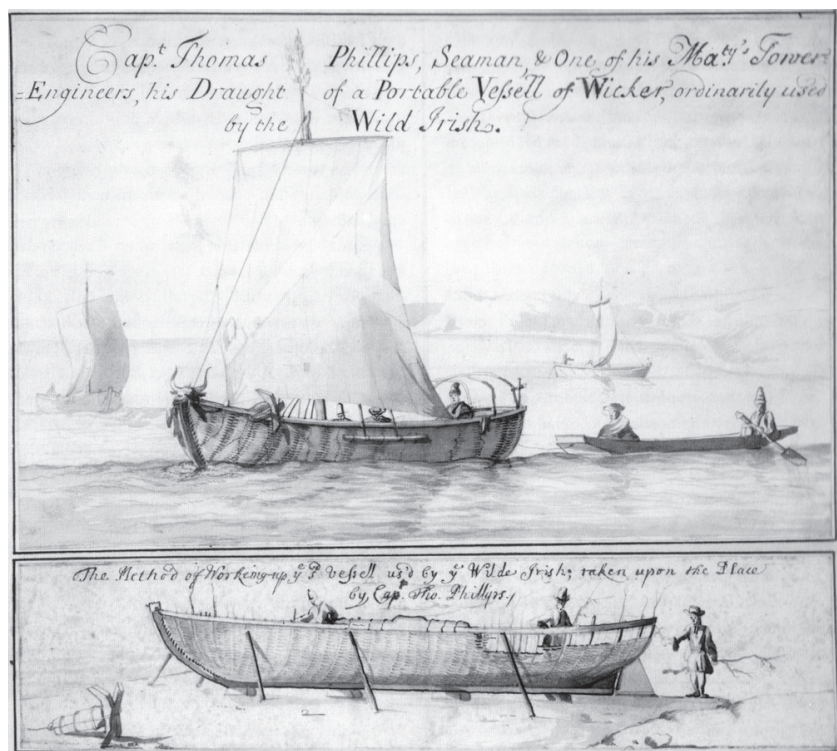 Cap.t Thomas Phillips, Seaman, & One of his Ma.ty's Tower
=Engineers, his Draught of a Portable Vessell of Wicker, ordinarily used
by the Wild Irish.
The Method of Workeing up y.e s.d Vessell us'd by y.e Wilde Irish; taken upon the Place
by Cap.t Tho. Phillyps.